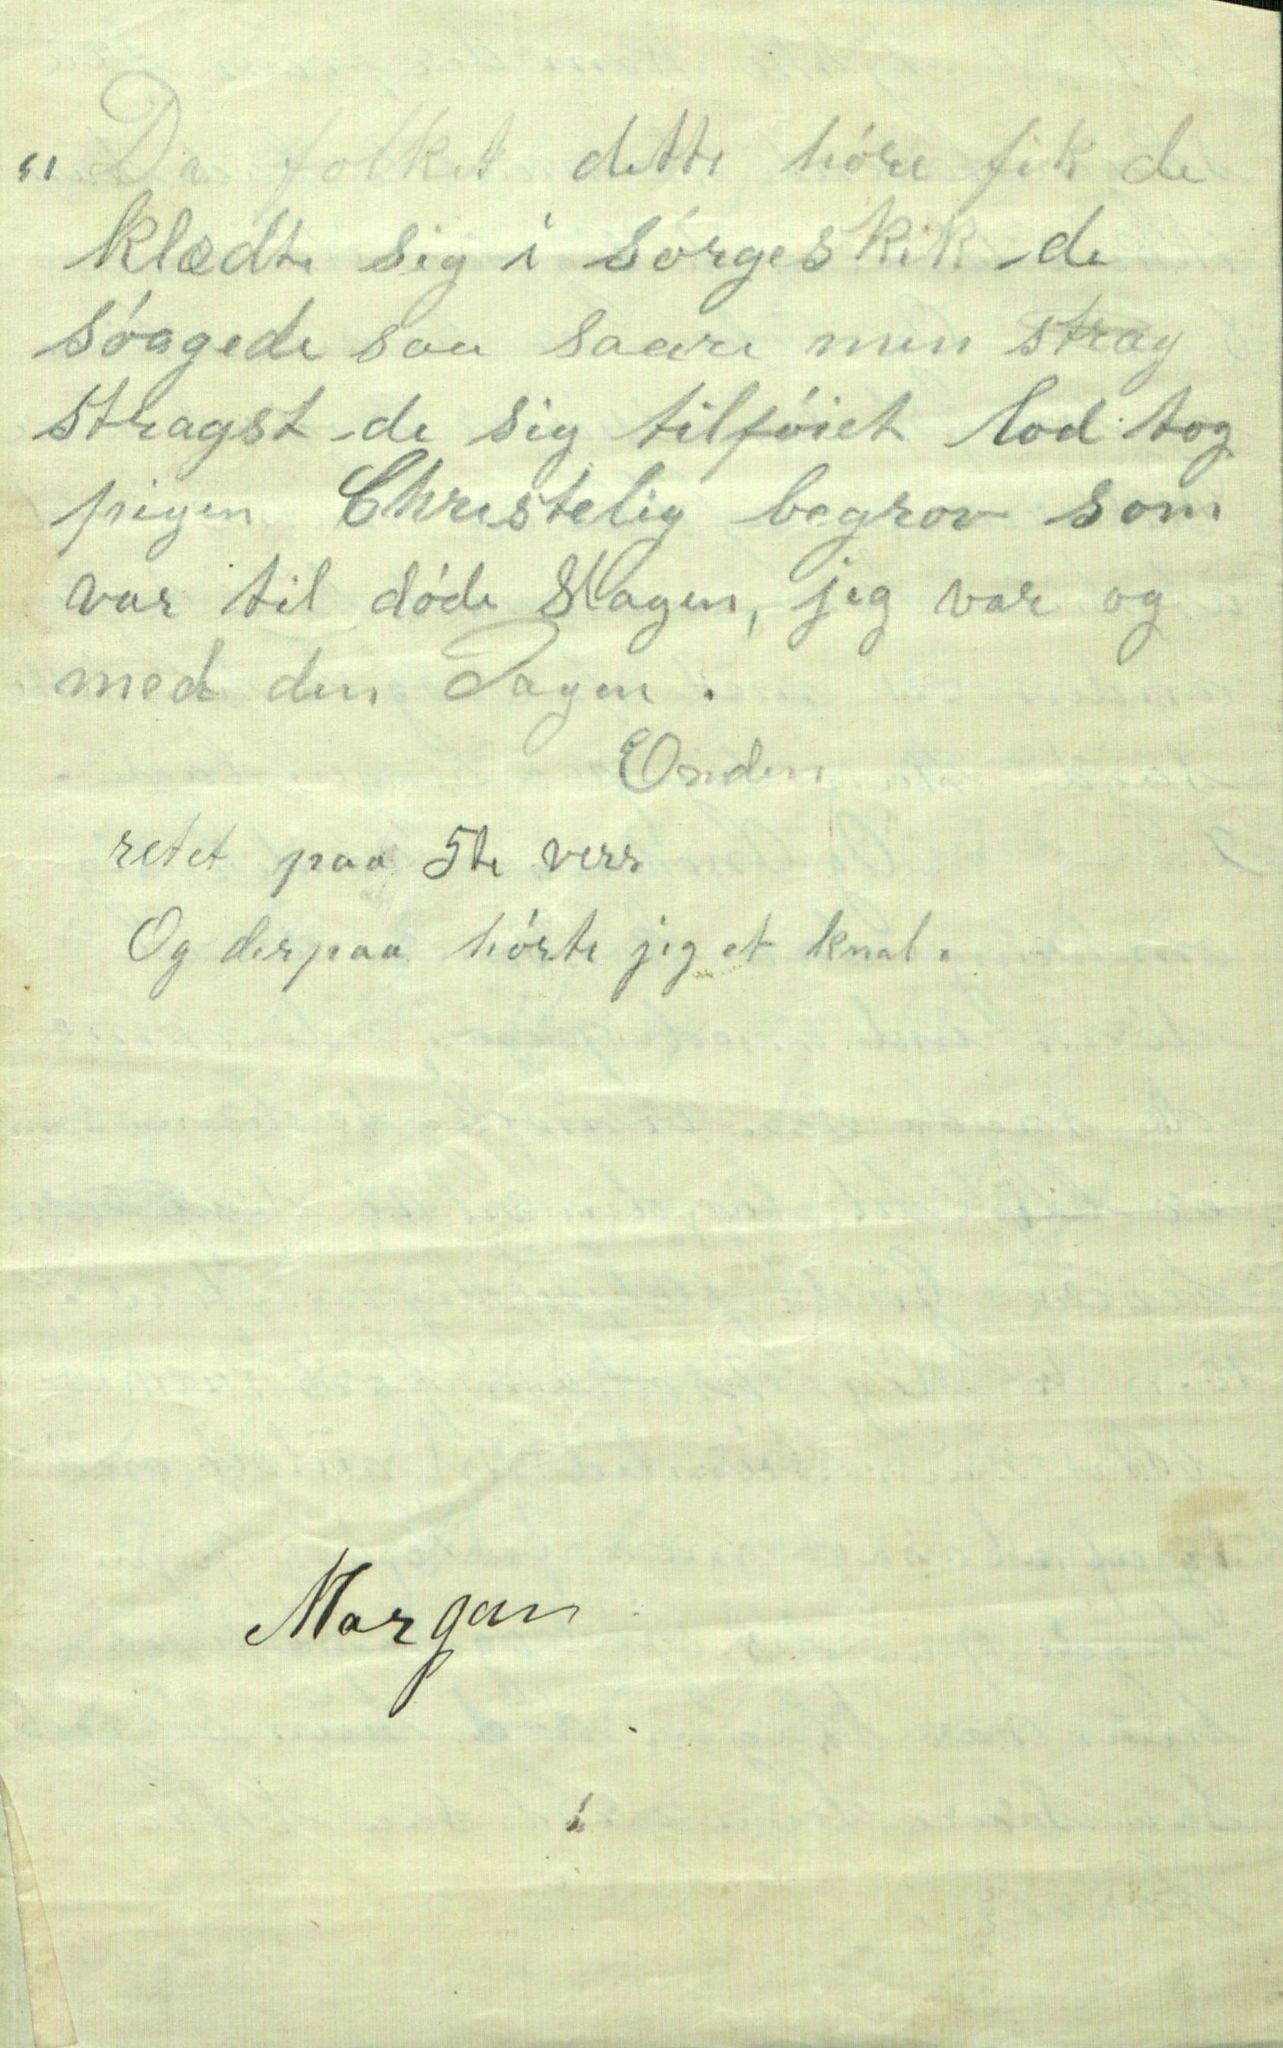 11 Da folket dette höre fik de
klædte sig i sörgeskik de
söagede saa saare men strag
stragst de sig tilföiet lod tog
pigen Christelig begrov som
var til döde slagen, jeg var og
med den Dagen.
Enden
retet paa 5te vers
Og derpaa hörte jeg et knal.
Morgan